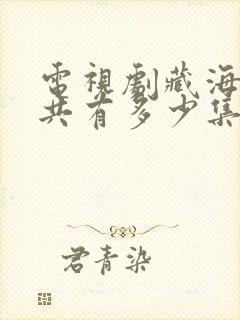 電視劇藏海
共有多少集
君青染